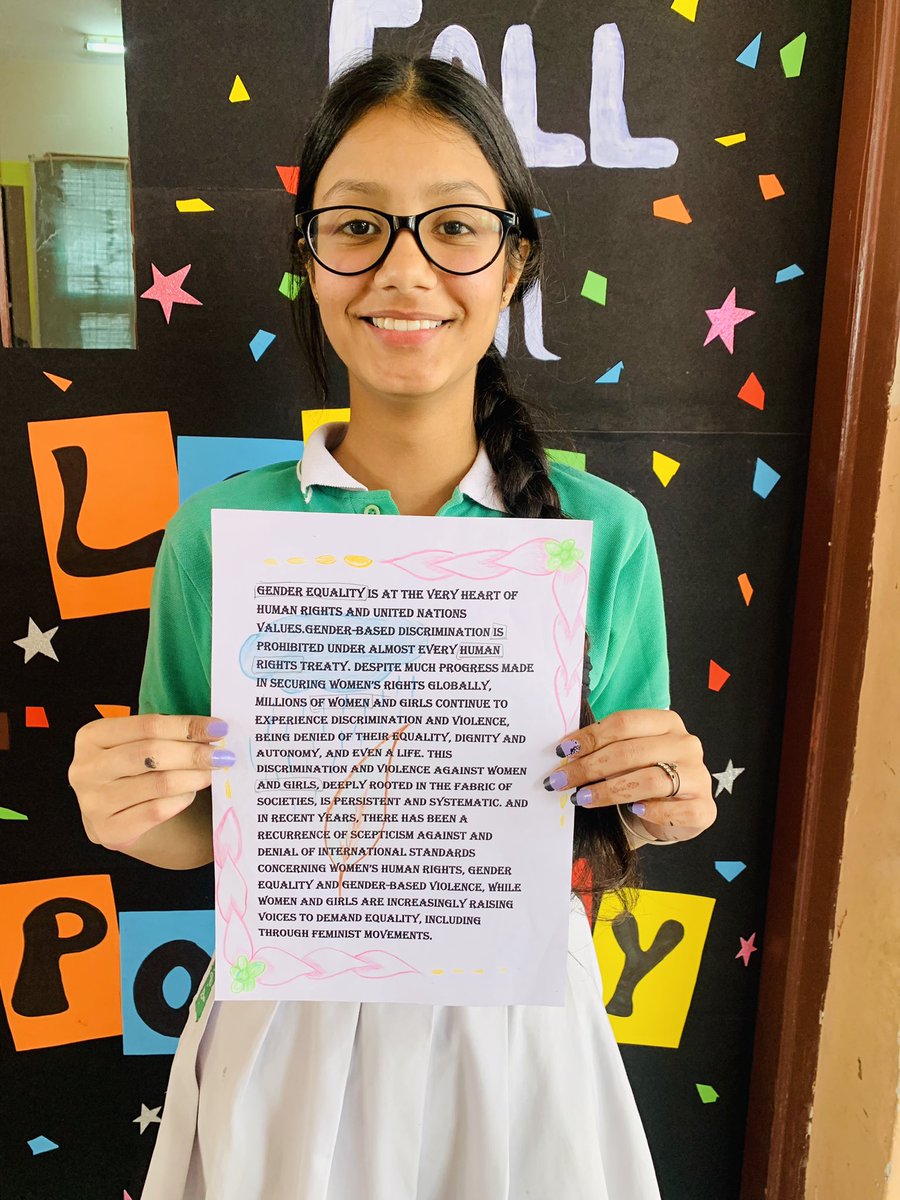 FALL
L
P O Y
GENDER EQUALITY IS AT THE VERY HEART OF
HUMAN RIGHTS AND UNITED NATIONS
VALUES.GENDER-BASED DISCRIMINATION IS
PROHIBITED UNDER ALMOST EVERY HUMAN
RIGHTS TREATY. DESPITE MUCH PROGRESS MADE
IN SECURING WOMEN'S RIGHTS GLOBALLY,
MILLIONS OF WOMEN AND GIRLS CONTINUE TO
EXPERIENCE DISCRIMINATION AND VIOLENCE,
BEING DENIED OF THEIR EQUALITY, DIGNITY AND
AUTONOMY, AND EVEN A LIFE. THIS
DISCRIMINATION AND VIOLENCE AGAINST WOMEN
AND GIRLS, DEEPLY ROOTED IN THE FABRIC OF
SOCIETIES, IS PERSISTENT AND SYSTEMATIC. AND
IN RECENT YEARS, THERE HAS BEEN A
RECURRENCE OF SCEPTICISM AGAINST AND
DENIAL OF INTERNATIONAL STANDARDS
CONCERNING WOMEN'S HUMAN RIGHTS, GENDER
EQUALITY AND GENDER-BASED VIOLENCE, WHILE
WOMEN AND GIRLS ARE INCREASINGLY RAISING
VOICES TO DEMAND EQUALITY, INCLUDING
THROUGH FEMINIST MOVEMENTS.